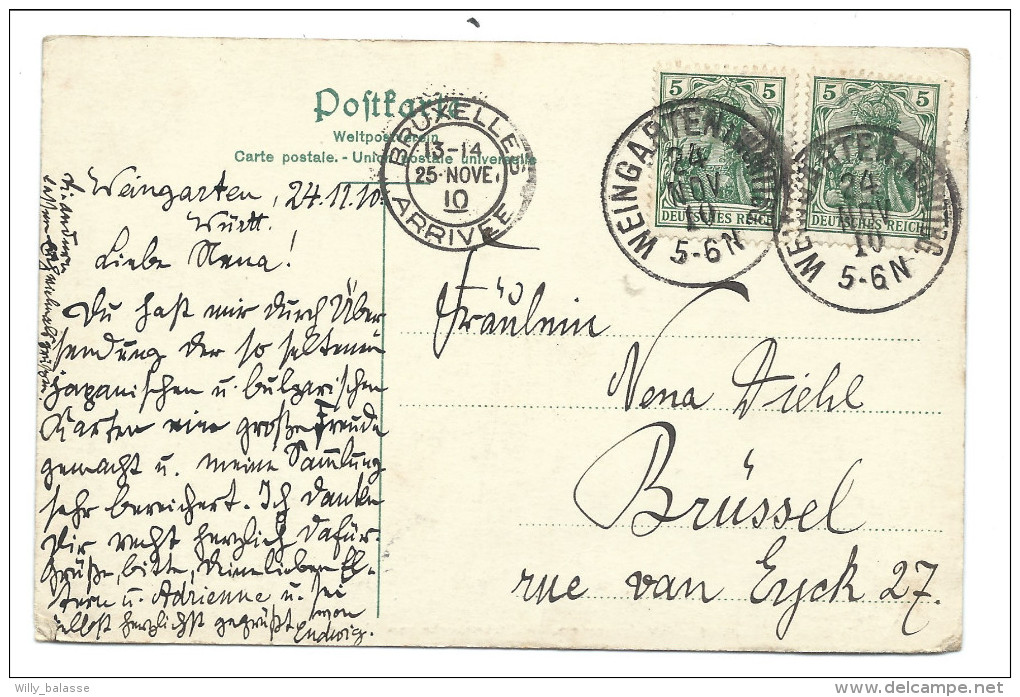 Postkarte
Weltpostverein
Carte postale. - Union postale universelle
BRUXELLES
13-14
25·NOVE
10
ARRIVÉE
5 5
DEUTSCHES REICH
5 5
DEUTSCHES REICH
WEINGARTEN
24
NOV
10
5-6N
WEINGARTEN
24
NOV
10
5-6N
Weingarten, 24.11.10.
Württ.
Liebe Nena!
Du hast mir durch Über
sendung der so seltenen
japanischen u. bulgarischen
Karten eine große Freude
gemacht u. meine Sammlung
sehr bereichert. Ich danke
Dir recht herzlich dafür.
Grüße, bitte, Deine lieben El-
tern u. Adrienne u. sei
selbst herzlichst gegrüßt von
Ludwig.
Fräulein
Nena Diehl
Brüssel
rue van Eyck 27.
Willy_balasse
delcampe.net